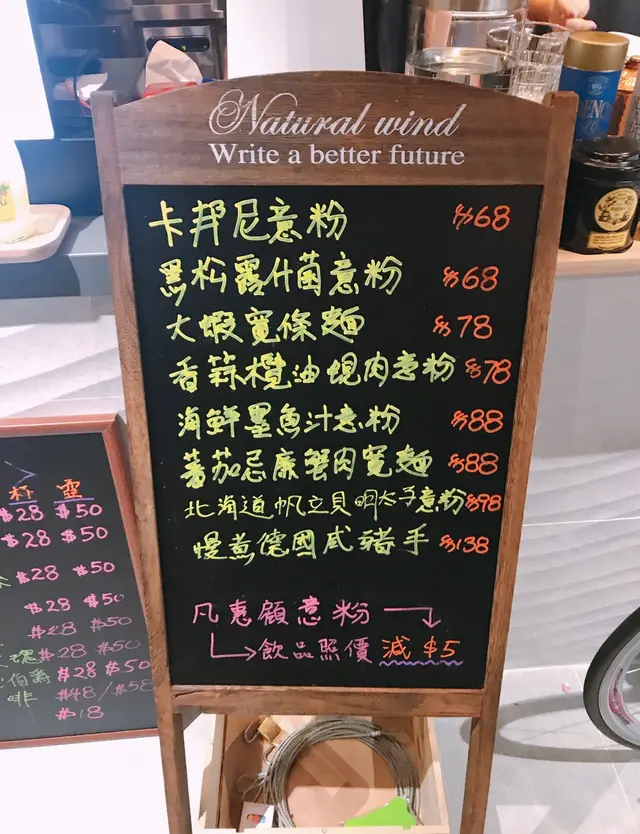 Natural wind
Write a better future
卡邦尼意粉 $68
黑松露什菌意粉 $68
大蝦寬條麵 $78
香蒜欖油蜆肉意粉 $78
海鮮墨魚汁意粉 $88
蕃茄忌廉蟹肉寬麵 $88
北海道帆立貝明太子意粉 $98
慢煮德國咸豬手 $138
凡惠顧意粉
飲品照價減 $5
杯 壺
$28 $50
$28 $50
$28 $50
$28 $50
$28 $50
瑰 $28 $50
伯爵 $28 $50
啡 $48/$58
$18